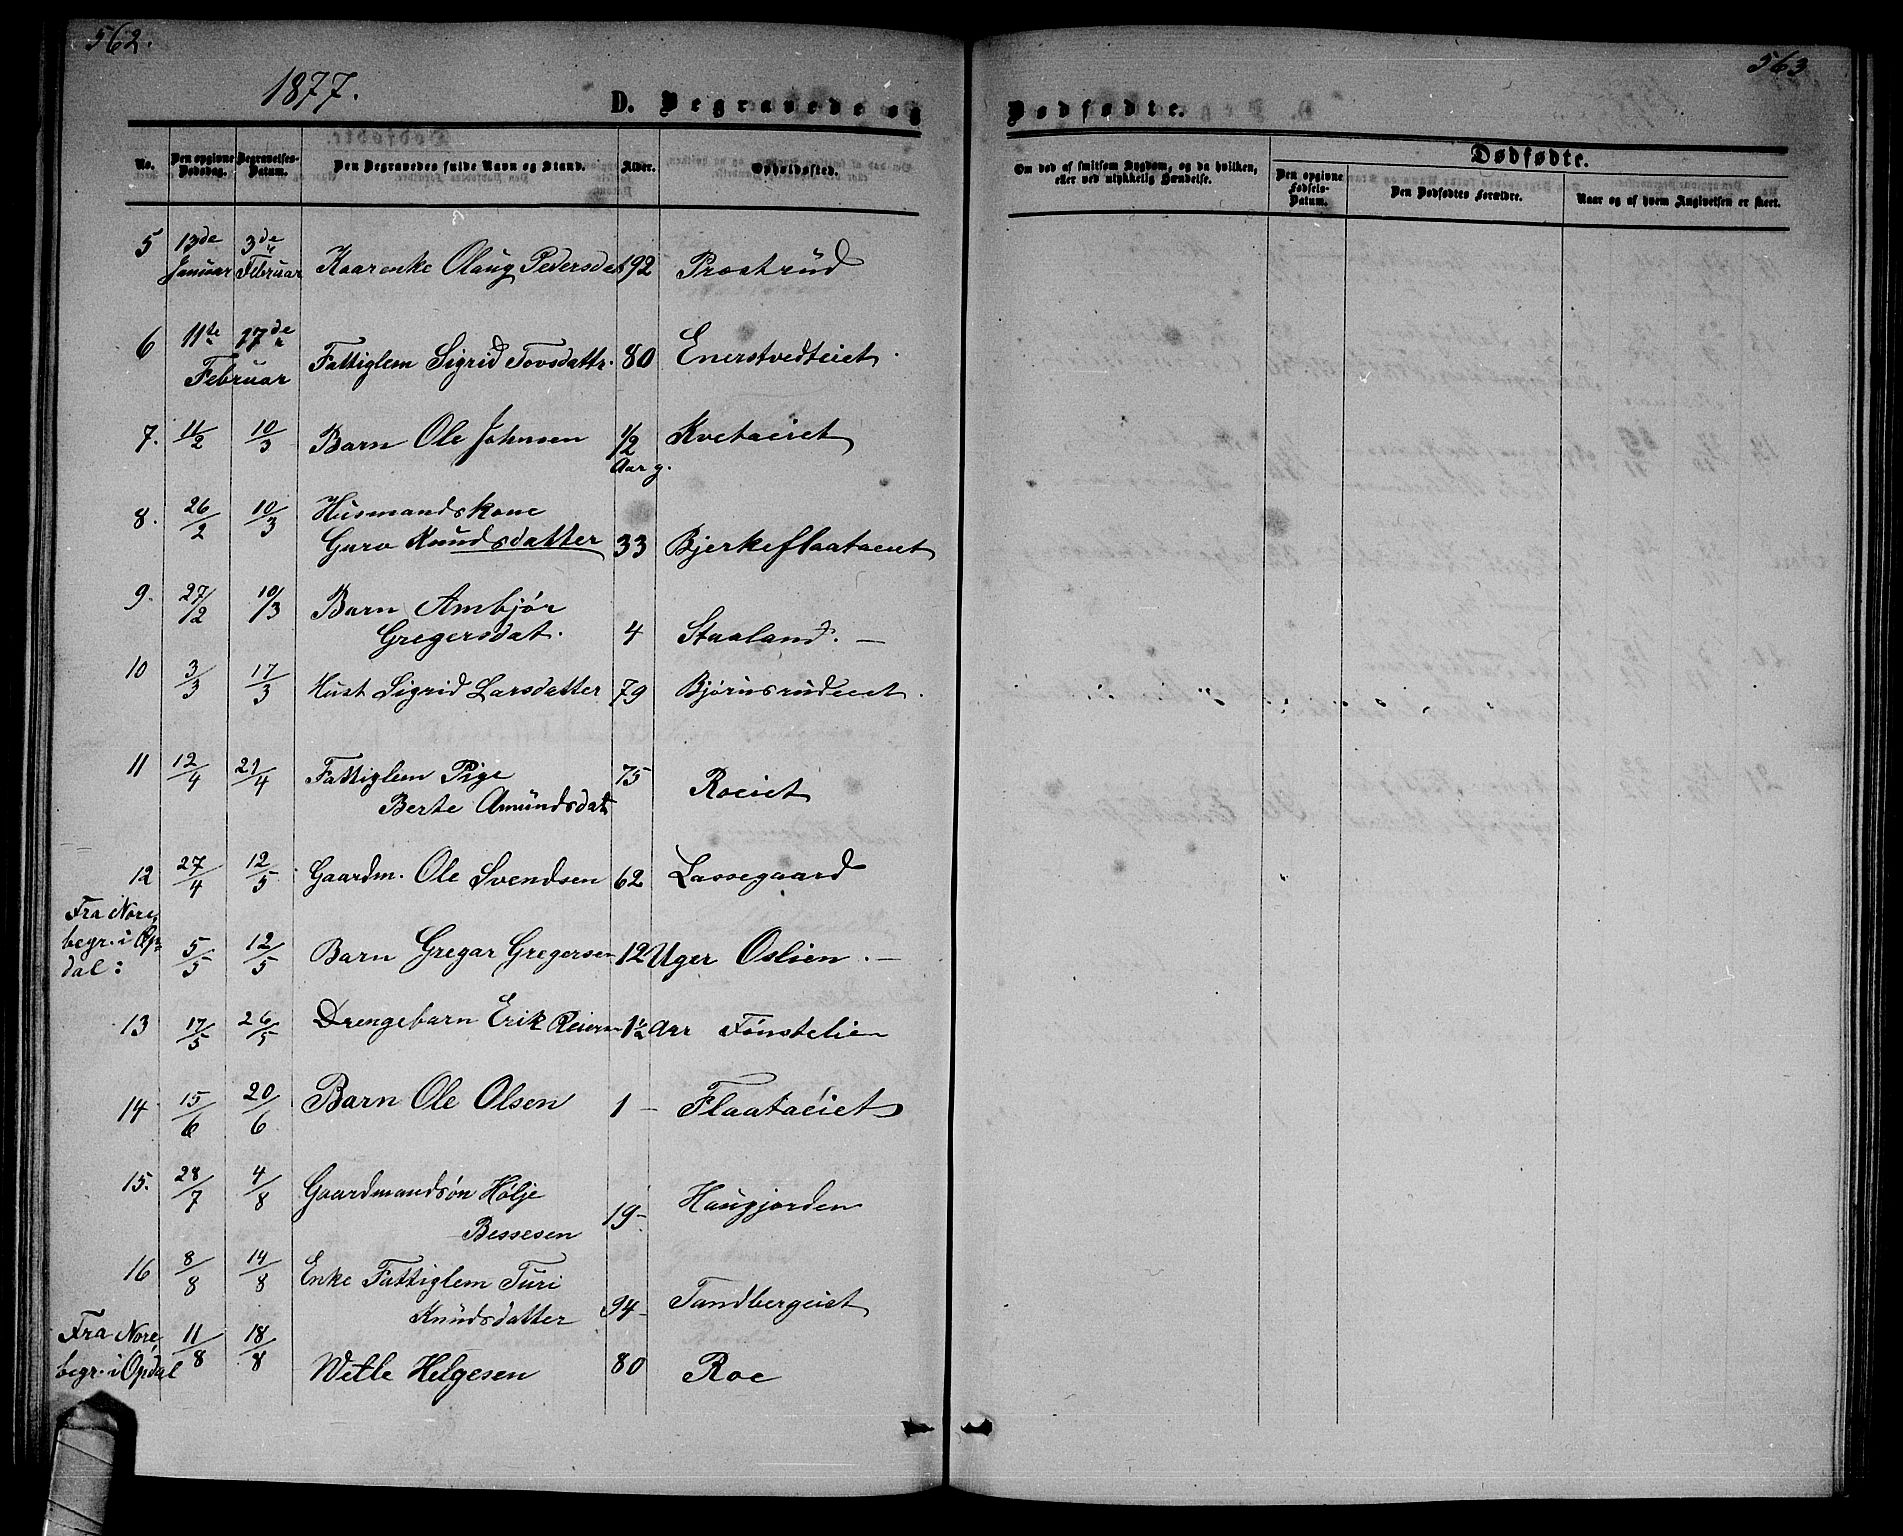 562.
1877.
D. Begravede og
No.
Den opgivne Dødsdag.
Begravelses-Datum.
Den Begravedes fulde Navn og Stand.
Alder.
Opholdssted.
5 13de Januar 3de Februar Kaarenke Olaug Pedersdat 92 Praatrud
6 11te 17de Februar Fattiglem Sigrid Tovsdattr. 80 Enerstvedteiet.
7. 11/2 10/3 Barn Ole Johnsen 1/2 Aar g. Kvetaeiet
8. 26/2 10/3 Husmandskone
Guro Knudsdatter 33 Bjerkeflaataeiet
9. 27/2 10/3 Barn Ambjør
Gregersdat. 4 Staaland. —
10 3/3 17/3 Hust Sigrid Larsdatter 79 Bjørnsrudeiet.
11 12/4 21/4 Fattiglem Pige 75
Berte Amundsdat Roeiet
12 27/4 12/5 Gaardm. Ole Svendsen 62 Lassegaard
Fra Nore,
begr. i Op-
dal: 5/5 12/5 Barn Gregar Gregersen 12 Uger Oslien. —
13 17/5 26/5 Drengebarn Erik Reiersn 1 1/2 Aar Fønstelien
14 15/6 20/6 Barn Ole Olsen 1 — Flaataeiet
15. 28/7 4/8 Gaardmandsøn Hølje
Bessesen 19 — Haugjorden
16 8/8 14/8 Enke Fattiglem Turi
Knudsdatter 94 — Tandbergeiet
Fra Nore,
begr. i Opdal 11/8 18/8 Wetle Helgesen 80 Roe
563
Dødfødte.
Om død af smitsom Sygdom, og da hvilken,
eller ved ulykkelig Hændelse.
Dødfødte.
Den opgivne Fødsels-Datum.
Den Dødfødtes Forældre.
Naar og af hvem Angivelsen er skeet.